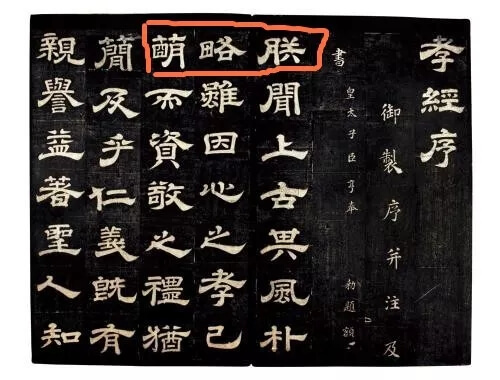 孝經序
御製序并注及
書 皇太子臣亨奉 勅題額
朕聞上古其風朴
略雖因心之孝已
萌而資敬之禮猶
簡及乎仁義旣有
親譽益著聖人知